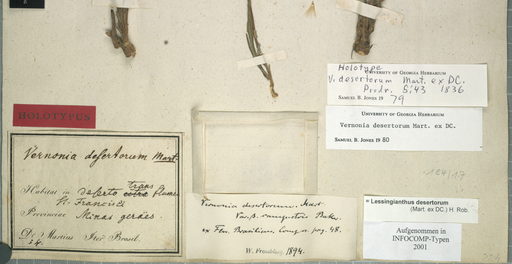 HOLOTYPUS
Vernonia desertorum Mart.
Habitat in deserto trans flumen
St. Francisci
Provinciae Minas geraës.
Dr. Martius Iter Brasil.
Vernonia desertorum. Mart.
Var. β. Baker.
ex Flor. Brasiliens. Comp. pag. 48.
1894.
Holotype
UNIVERSITY OF GEORGIA HERBARIUM
V. desertorum Mart. ex DC.
Prodr. 5:43 1836
SAMUEL B. JONES 19 79
UNIVERSITY OF GEORGIA HERBARIUM
Vernonia desertorum Mart. ex DC.
SAMUEL B. JONES 19 80
= Lessingianthus desertorum
(Mart. ex DC.) H. Rob.
Aufgenommen in
INFOCOMP-Typen
2001